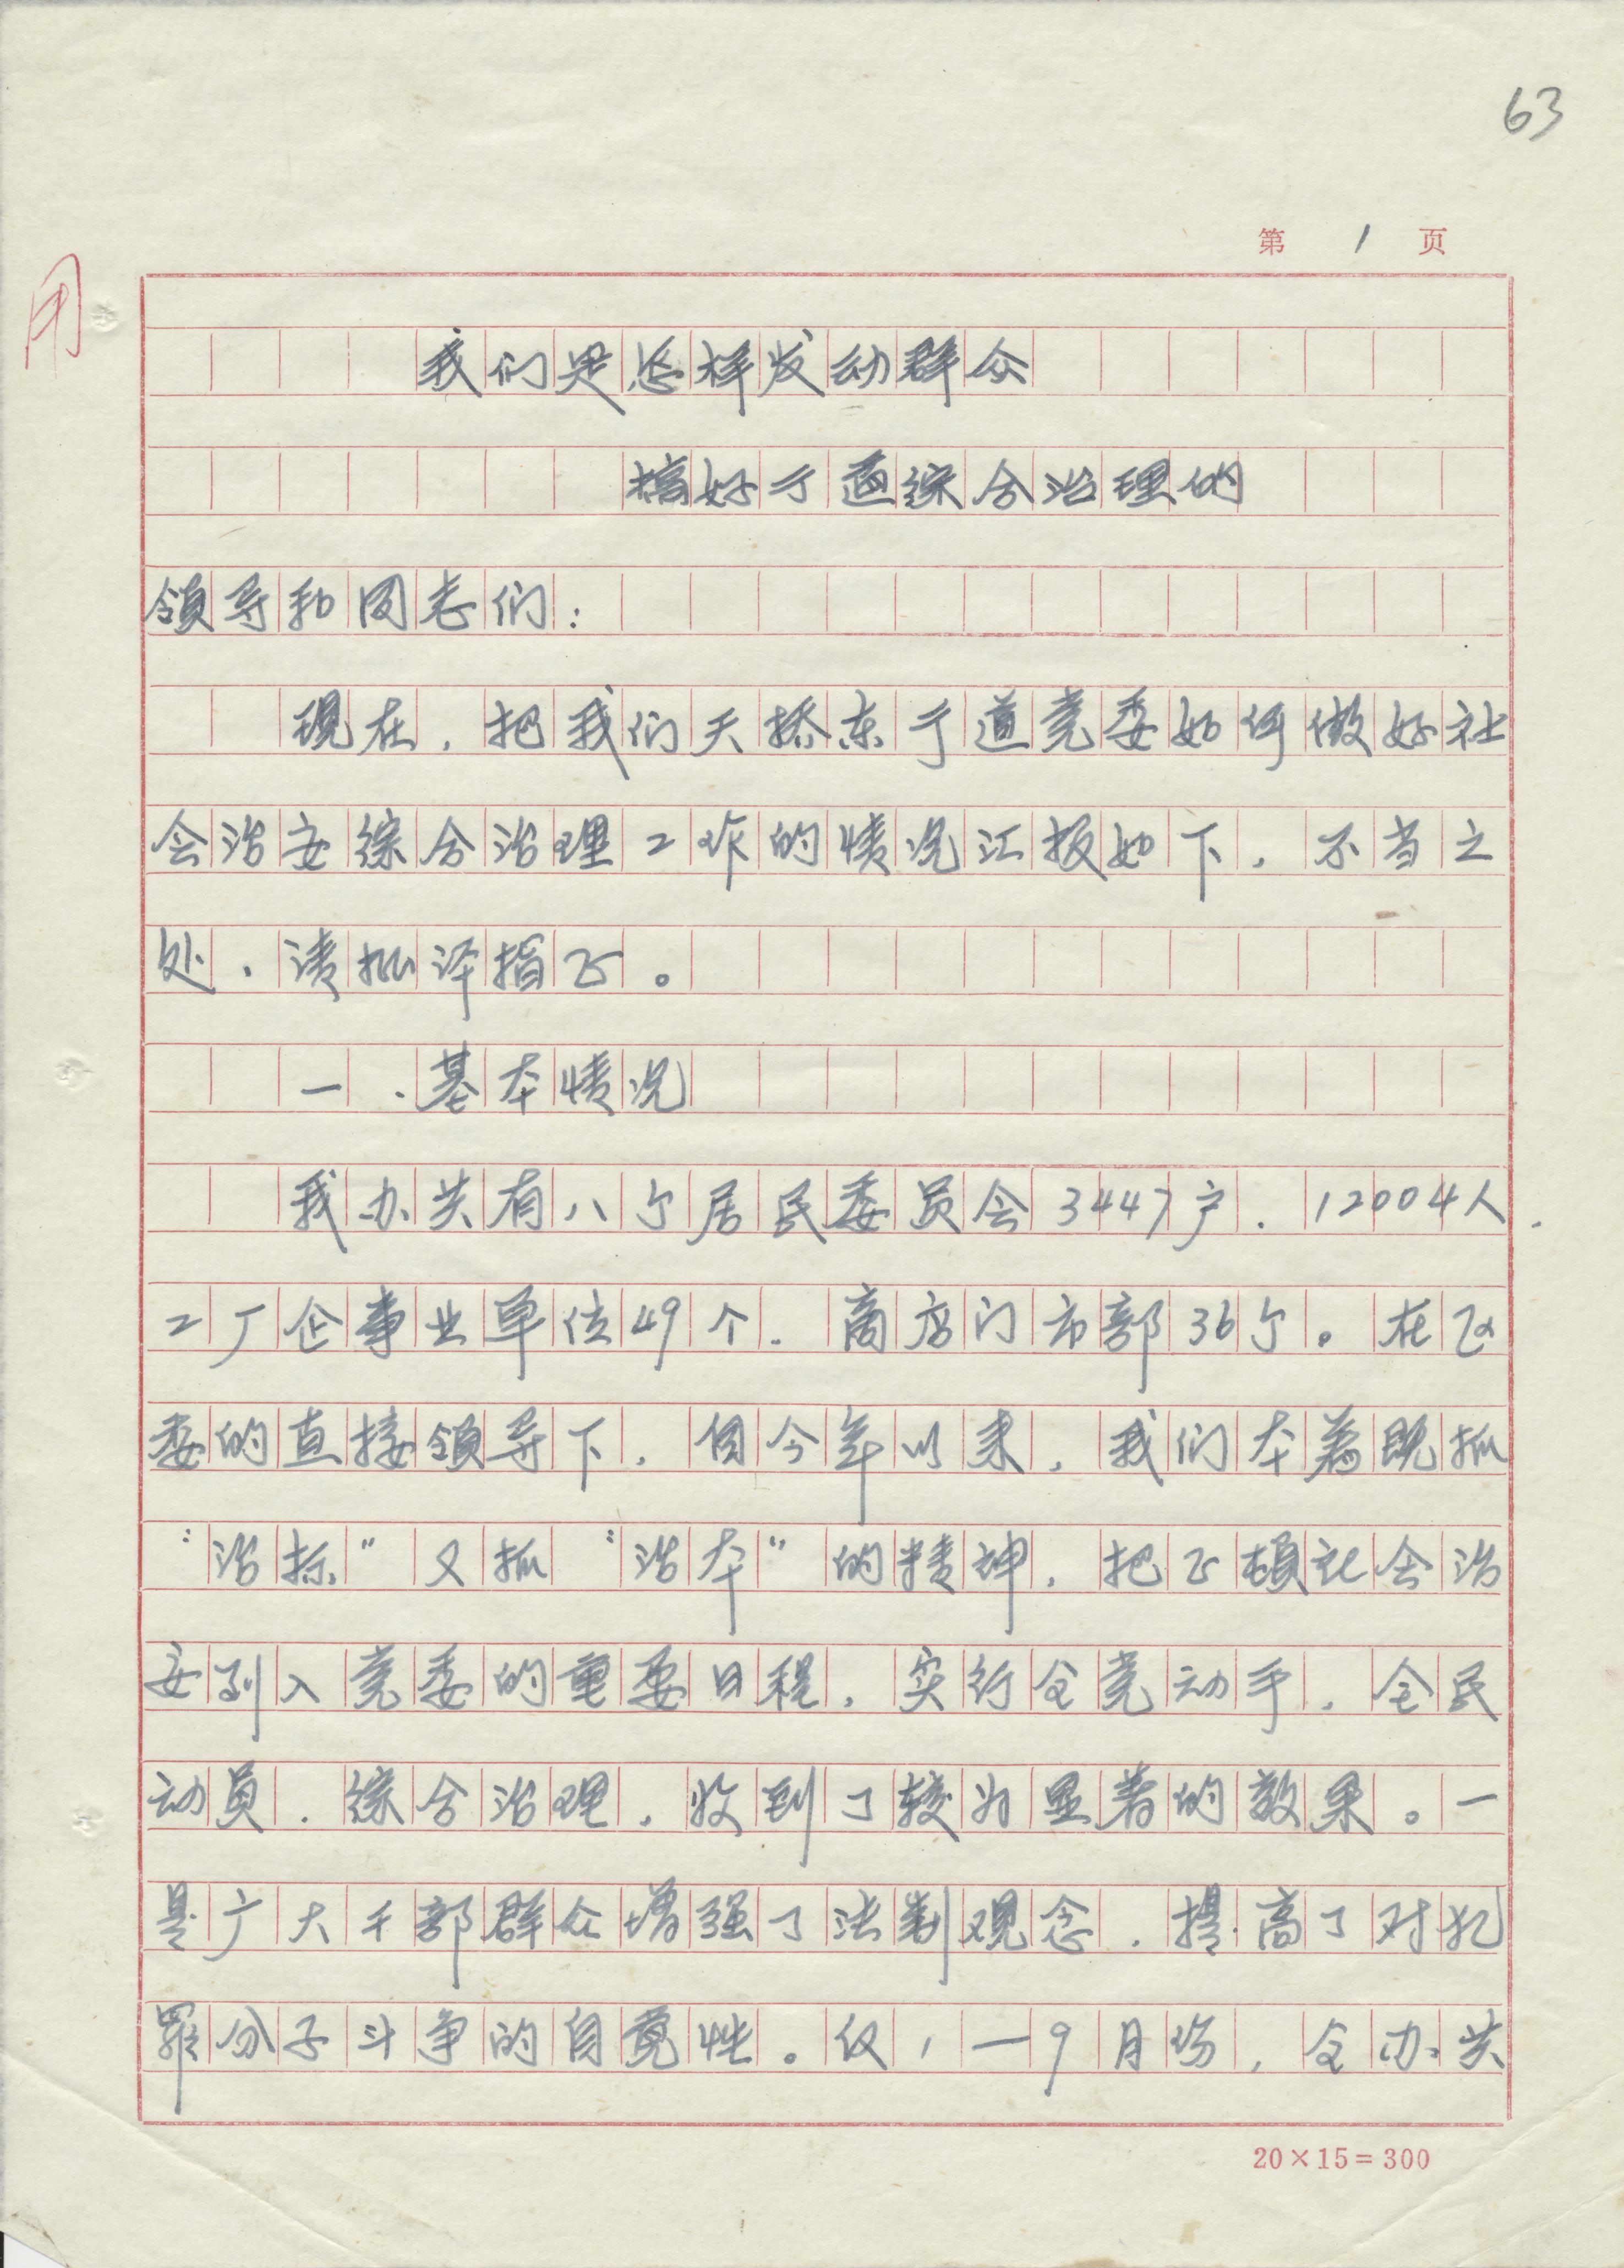 63
第 1 页
用
我们是怎样发动群众
搞好亍道综合治理的
领导和同志们：
现在，把我们天桥东亍道党委如何做好社
会治安综合治理工作的情况汇报如下，不当之
处，请批评指正。
一、基本情况
我办共有八个居民委员会3447户，12004人，
工厂企事业单位49个，商店门市部36个。在区
委的直接领导下，自今年以来，我们本着既抓
“治标”又抓“治本”的精神，把正顿社会治
安列入党委的重要日程，实行全党动手，全民
动员，综合治理，收到了较为显著的效果。一
是广大干部群众增强了法制观念，提高了对犯
罪分子斗争的自觉性。仅1—9月份，全办共
20×15=300